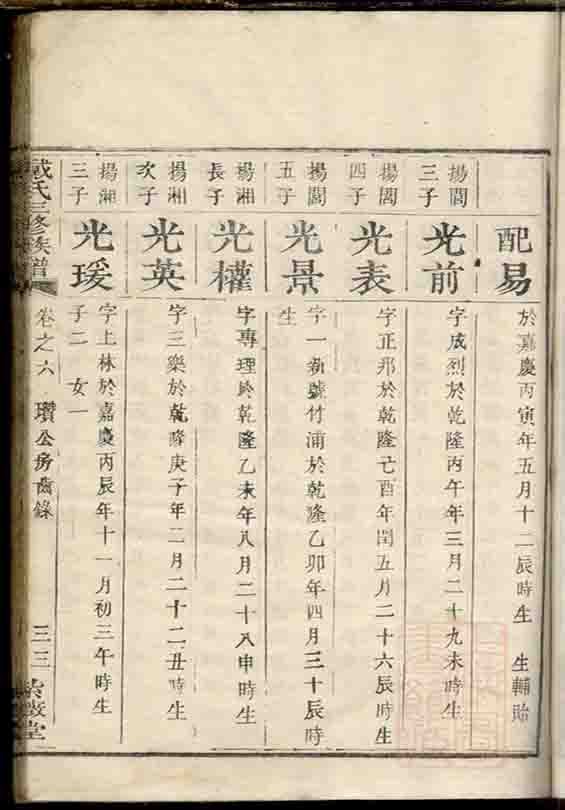 配易
於嘉慶丙寅年五月十二辰時生 生輔貽
揚閣
三子
光前
字成烈於乾隆丙午年三月二十九未時生
揚閣
四子
光表
字正邦於乾隆己酉年閏五月二十六辰時生
揚閣
五子
光景
字一新號竹浦於乾隆乙卯年四月三十辰時
生
揚湘
長子
光權
字專理於乾隆乙未年八月二十八申時生
揚湘
次子
光英
字三樂於乾隆庚子年二月二十二丑時生
揚湘
三子
光瑗
字上林於嘉慶丙辰年十一月初三午時生
子二 女一
戴氏三修族譜 卷之六 瓚公房齒錄 三三 敬堂